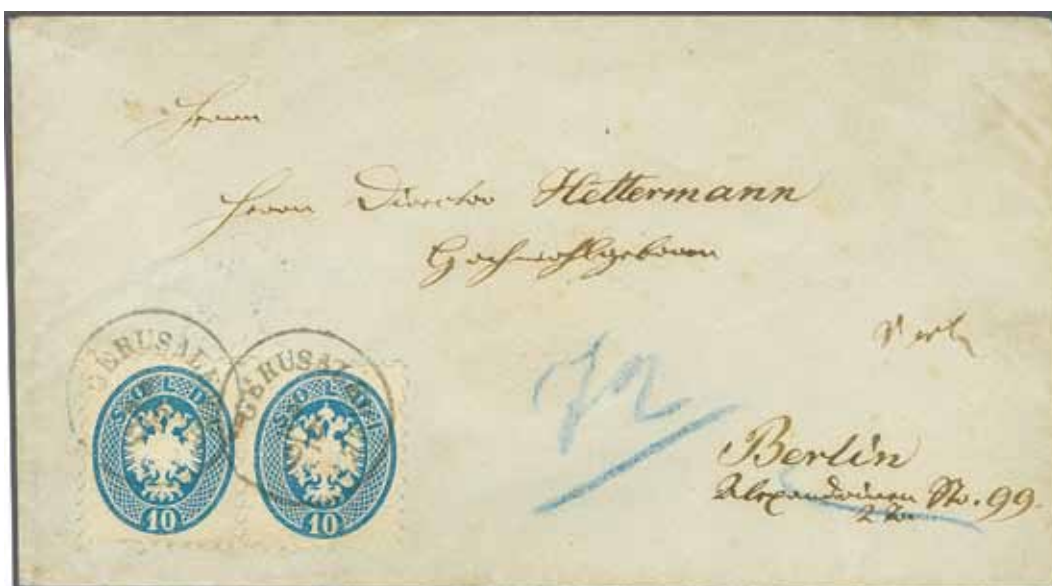 Herrn
Herrn Director Hettermann
Hochwohlgeboren
Berlin
Alexandrinen Str. 99.
2 Tr.
GERUSALEMME
GERUSALEMME
SOLDI
10
SOLDI
10